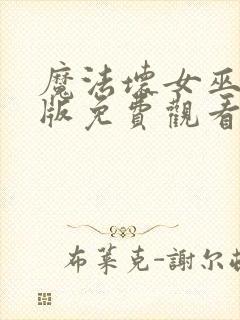 魔法壞女巫
版免費觀看
布萊克-謝尔